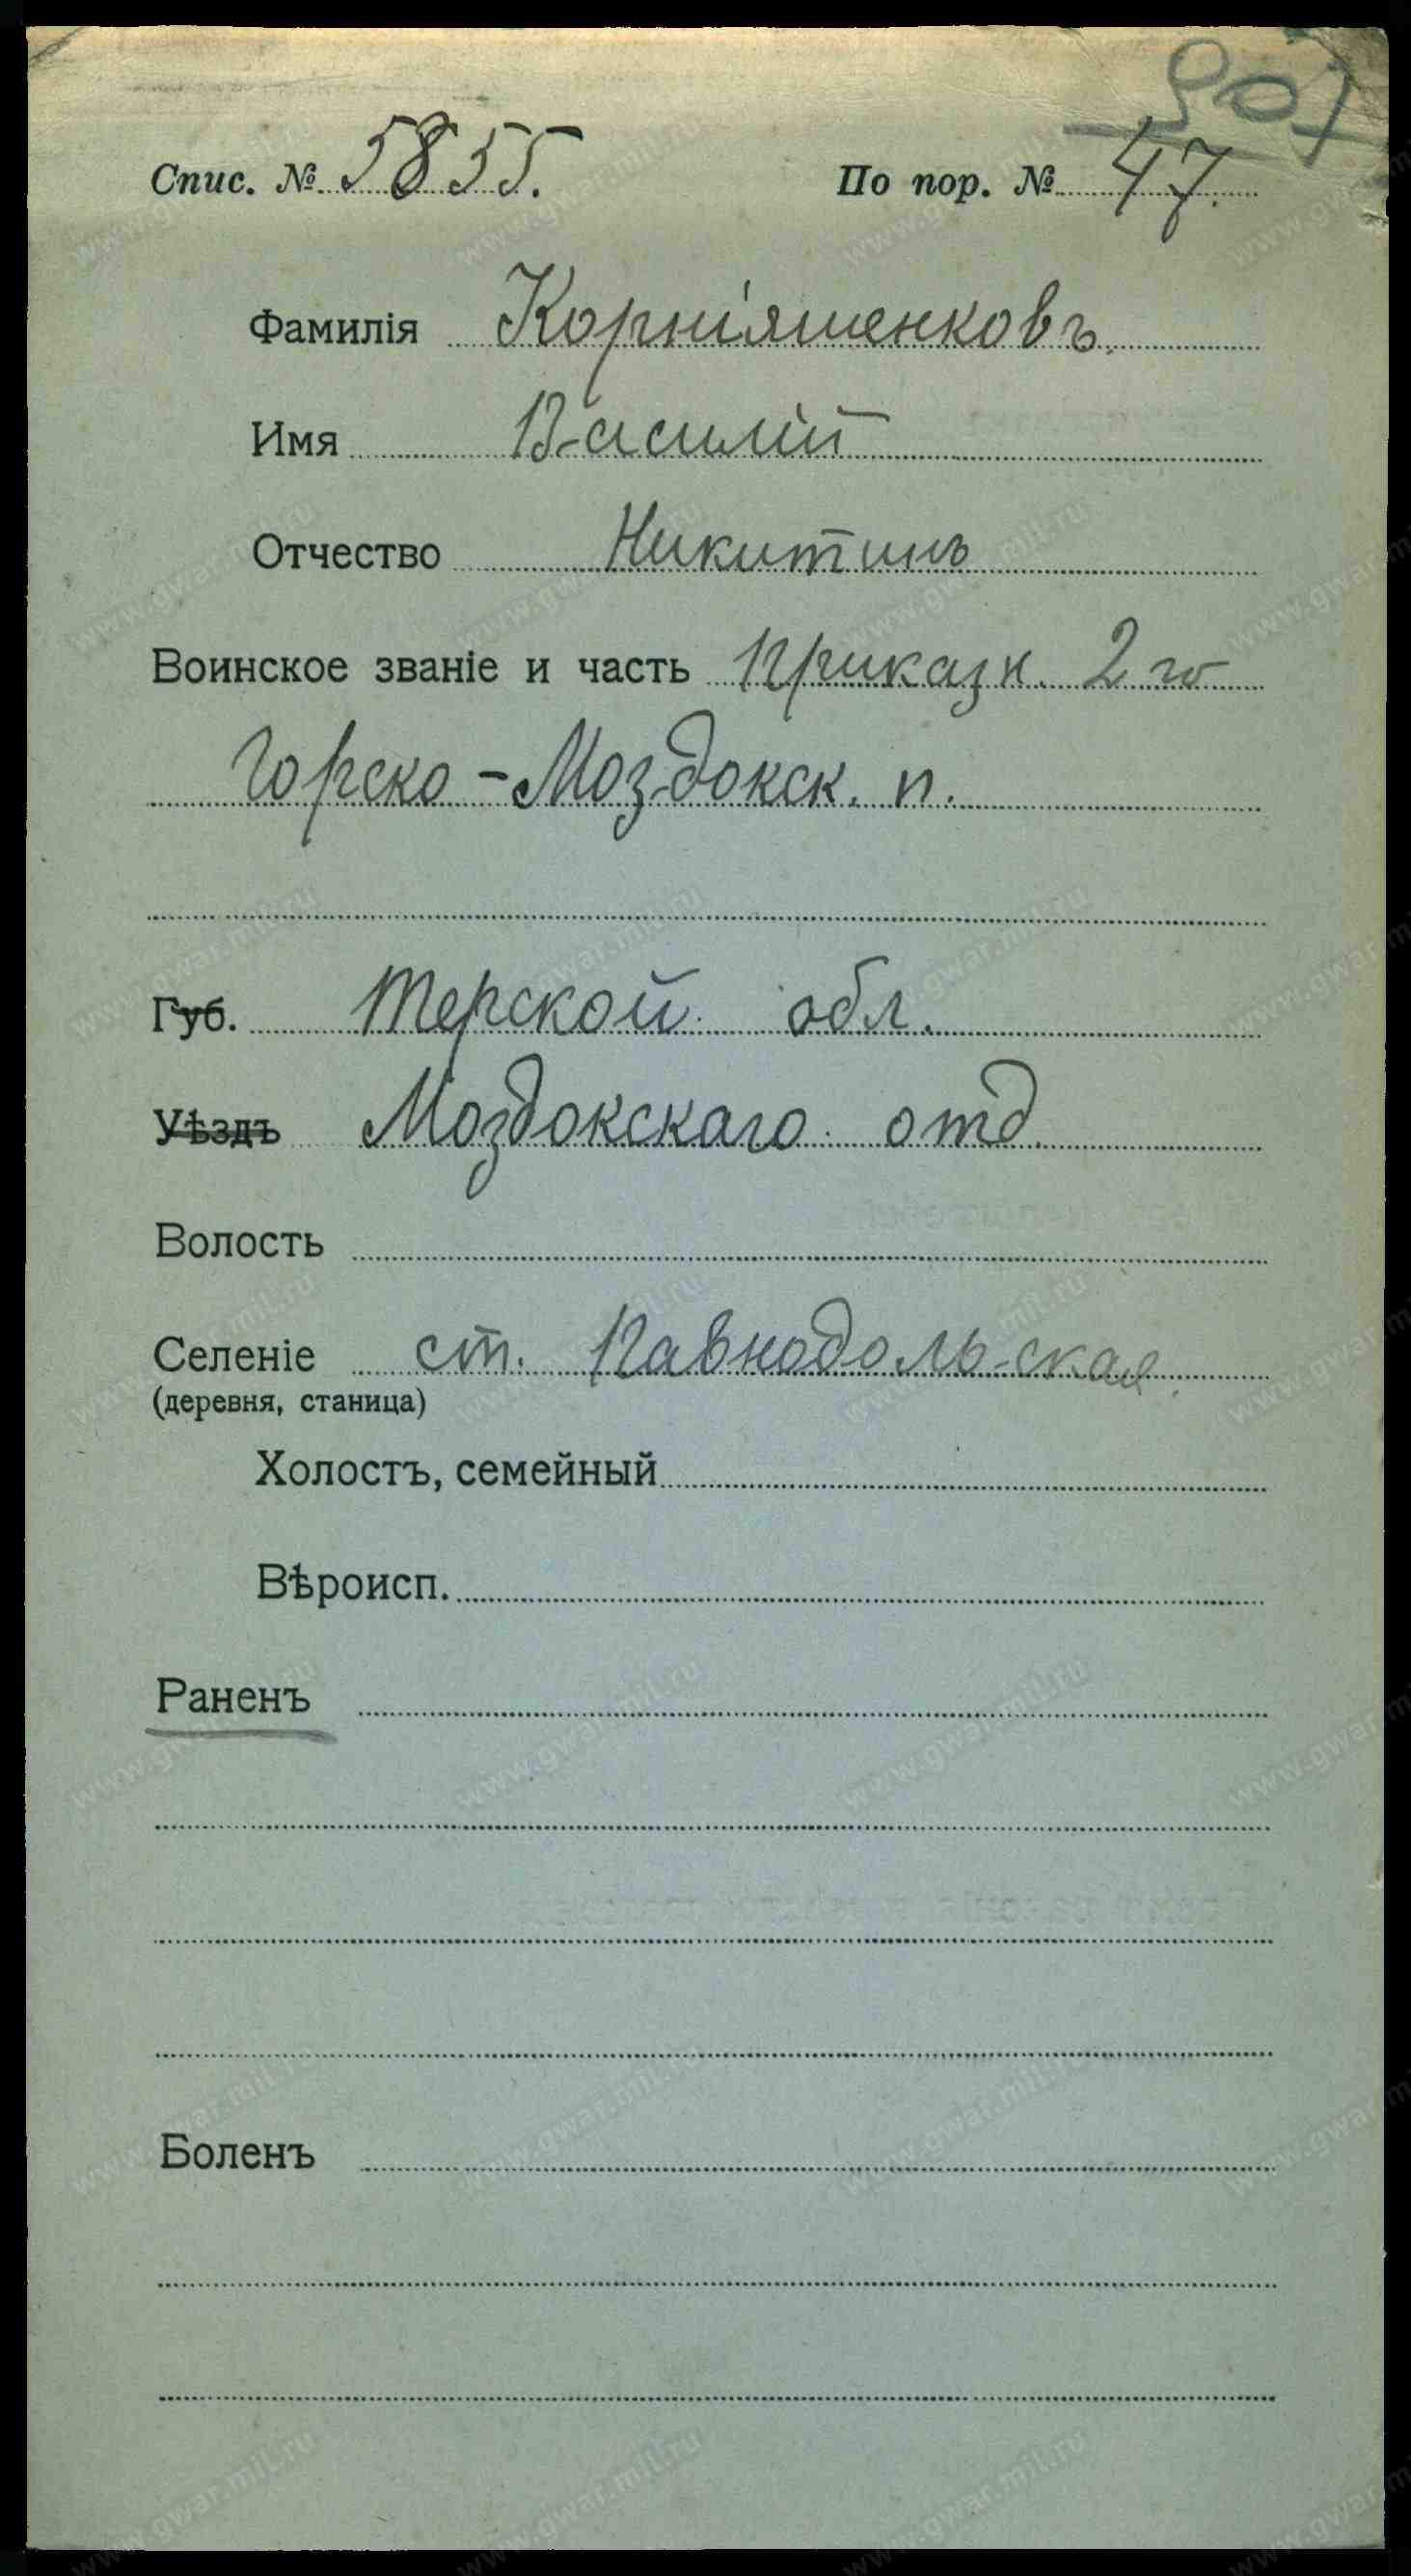 907
Спис. № 5855. По пор. № 47.
Фамилія Корніяшенковъ.
Имя Василій
Отчество Никитинъ
Воинское званіе и часть Приказн. 2го
Горско-Моздокск. п.
Губ. Терской обл.
Уѣздъ Моздокскаго отд.
Волость
Селеніе ст. Павнодольская.
(деревня, станица)
Холостъ, семейный
Вѣроисп.
Раненъ
Боленъ
www.gwar.mil.ru